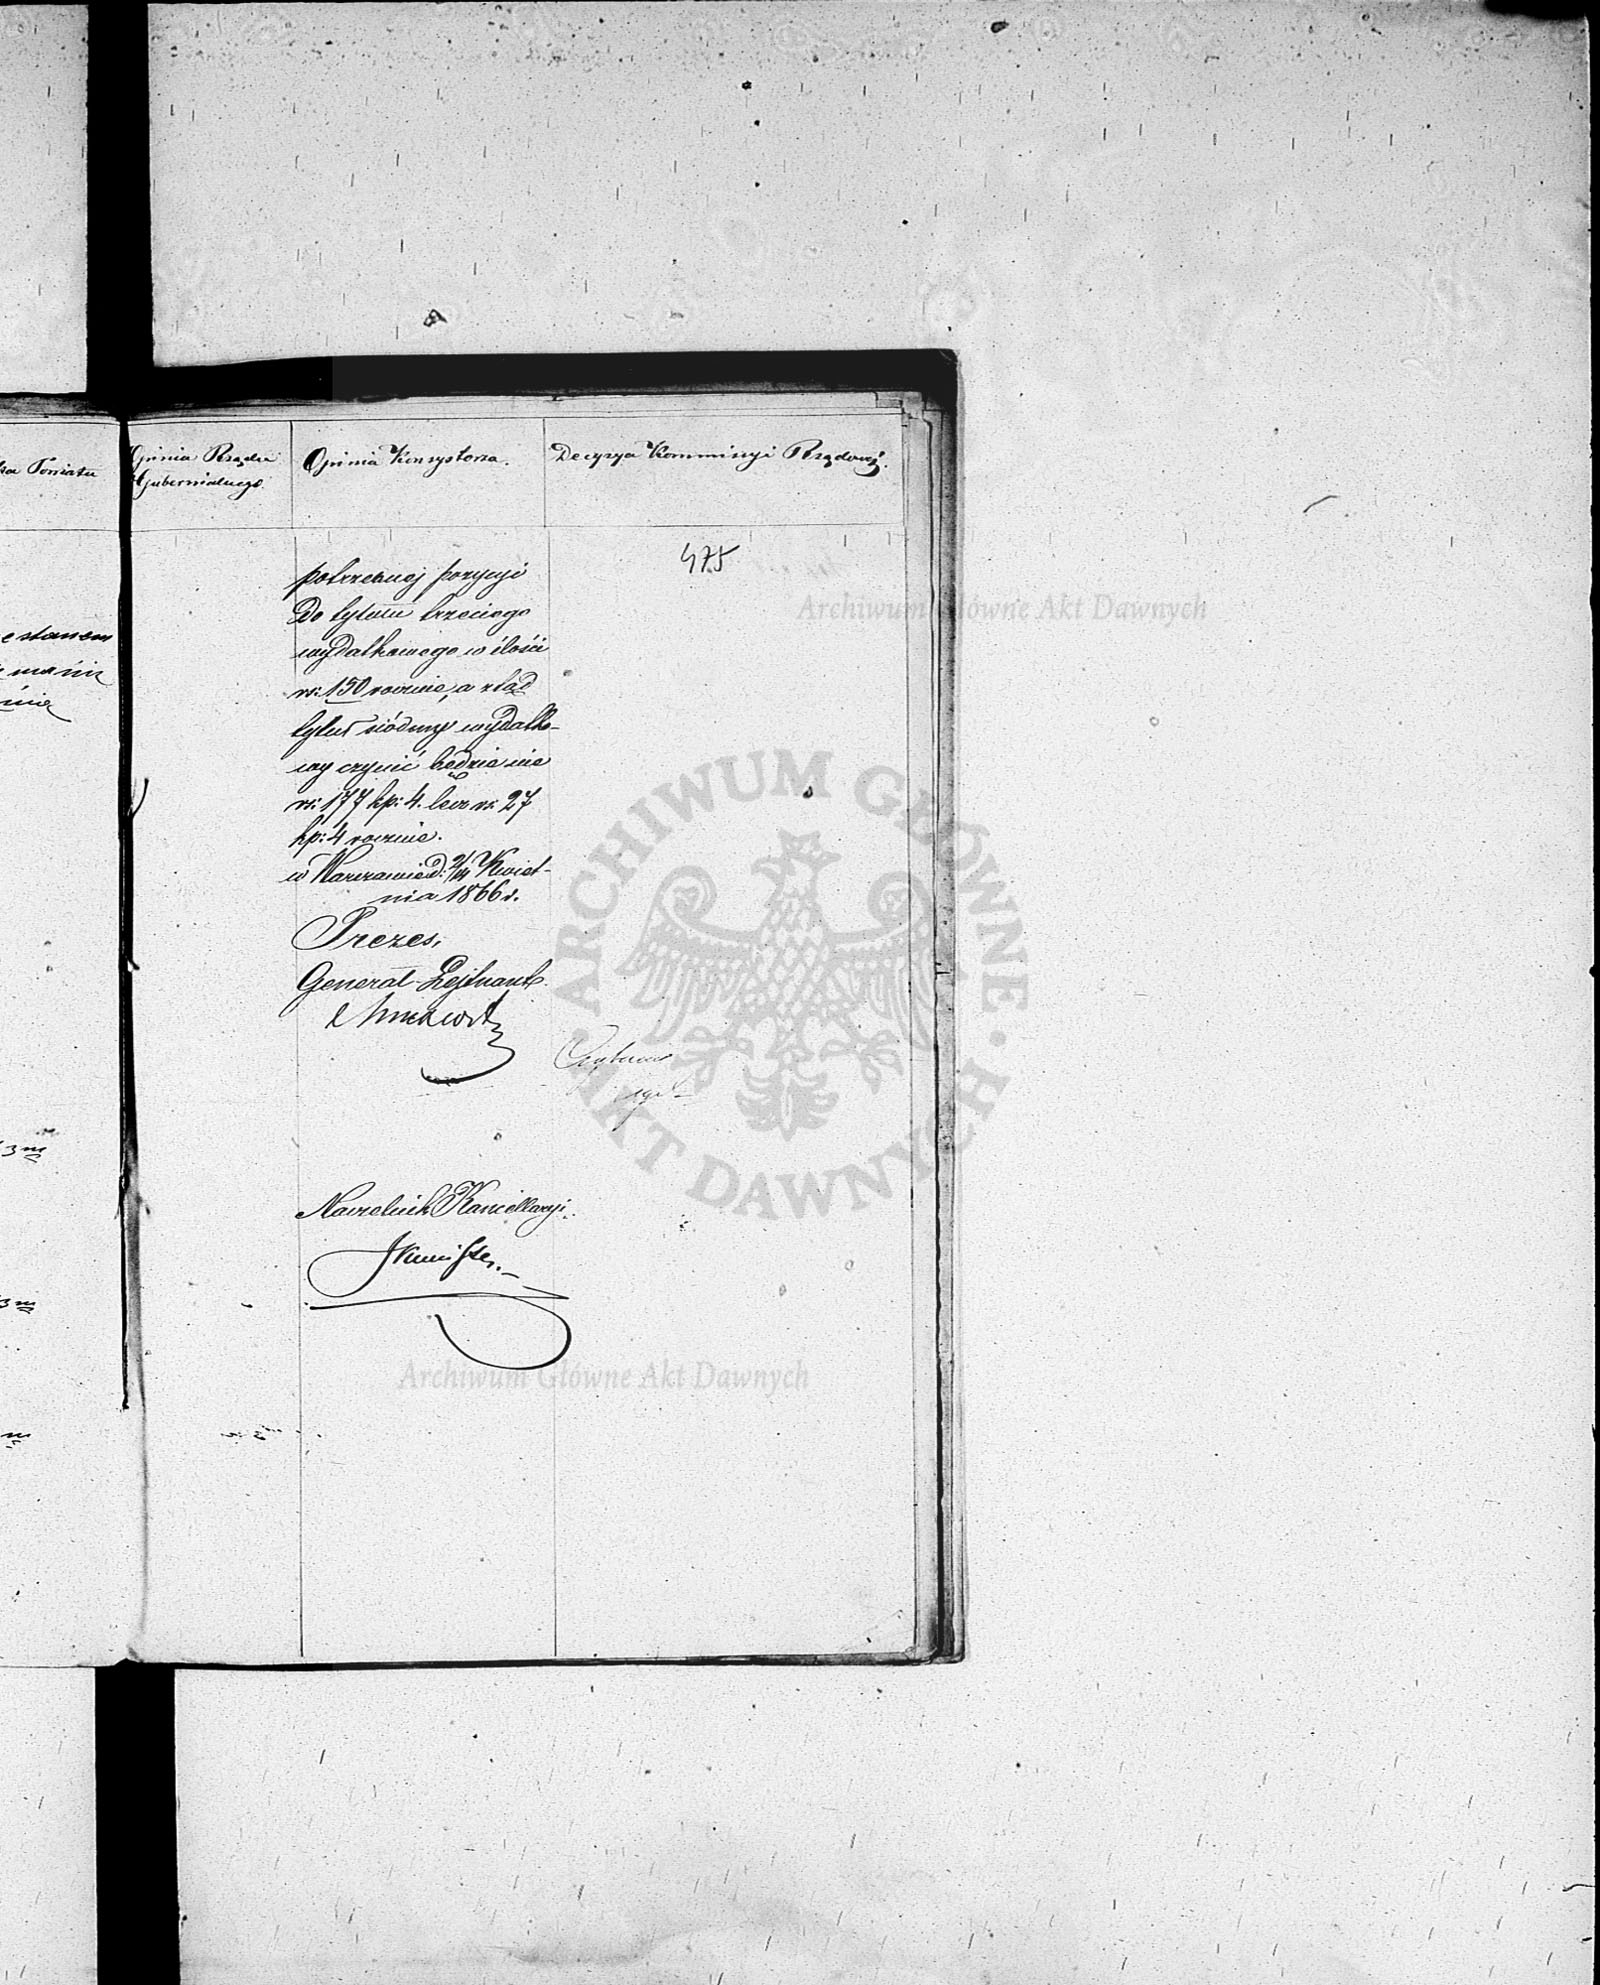 ka Powiatu
Opinia Rządu
Gubernialnego.
Opinia Konsystorza.
Decyzya Kommissyi Rządowéj.
475
e stanem
potrzebnej pozycyi
do tytułu trzeciego
wydatkowego w ilości
rs: 150 rocznie, a ztąd
tytuł siódmy wydatko-
wy czynić będzie nie
rs: 177 kp: 4. lecz rs: 27
kp: 4 rocznie.
w Warszawie d: 2/14 Kwiet-
nia 1866 r.
Prezes,
Generał-Lejtnant.
Naczelnik Kancellaryi
3m
3m
m
Archiwum Główne Akt Dawnych
ARCHIWUM GŁÓWNE · AKT DAWNYCH ·
Archiwum Główne Akt Dawnych